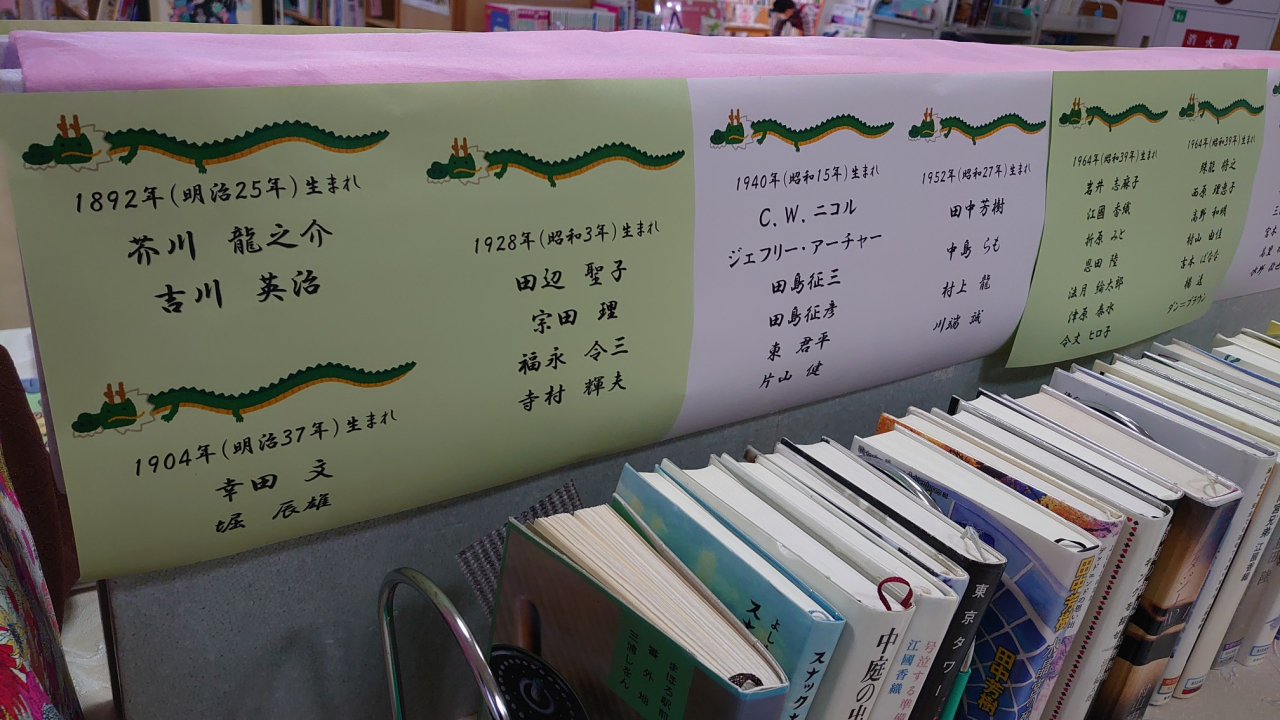 1892年(明治25年)生まれ
芥川 龍之介
吉川 英治
1904年(明治37年)生まれ
幸田 文
堀 辰雄
1928年(昭和3年)生まれ
田辺 聖子
宗田 理
福永 令三
寺村 輝夫
1940年(昭和15年)生まれ
C.W.ニコル
ジェフリー・アーチャー
田島征三
田島征彦
東 君平
片山 健
1952年(昭和27年)生まれ
田中芳樹
中島 らも
村上 龍
川端 誠
1964年(昭和39年)生まれ
岩井 志麻子
江國 香織
折原 みと
恩田 陸
法月 綸太郎
津原 泰水
令丈 ヒロ子
1964年(昭和39年)生まれ
西原 理恵子
高野 和明
村山 由佳
吉本 ばなな
橘 逃
ダン=ブラウン
消火栓
三浦しをん
よし
スナック
中庭の出
号泣する準備
江國香織
東京タワー
田中芳樹
田中芳樹